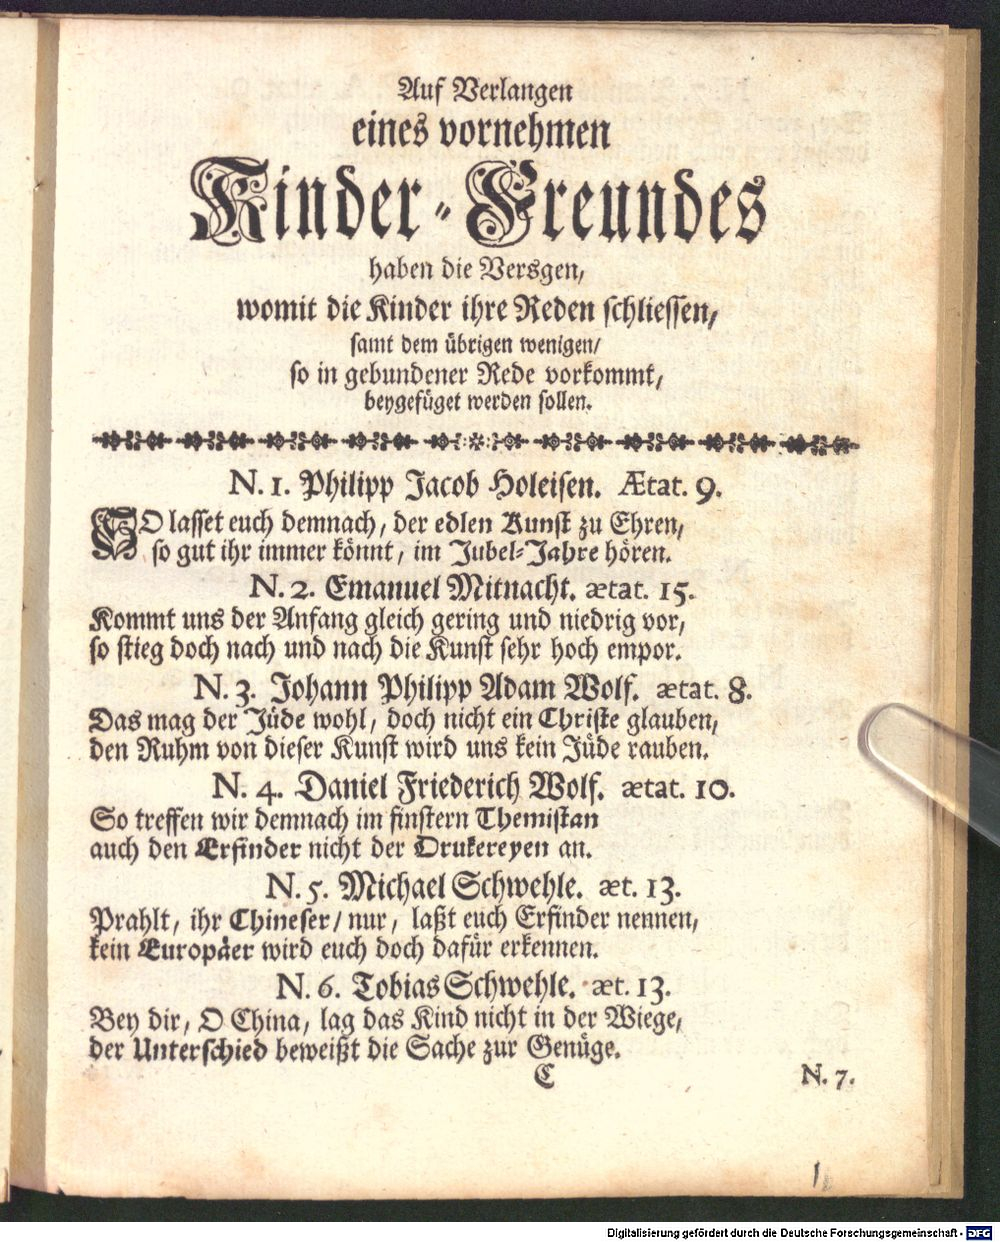 Auf Verlangen
eines vornehmen
Kinder-Freundes
haben die Versgen,
womit die Kinder ihre Reden schliessen,
samt dem übrigen wenigen/
so in gebundener Rede vorkommt,
beygefüget werden sollen.
N. 1. Philipp Jacob Holeisen. Ætat. 9.
SO lasset euch demnach, der edlen Kunst zu Ehren,
so gut ihr immer könnt, im Jubel-Jahre hören.
N. 2. Emanuel Mitnacht. ætat. 15.
Kommt uns der Anfang gleich gering und niedrig vor,
so stieg doch nach und nach die Kunst sehr hoch empor.
N. 3. Johann Philipp Adam Wolf. ætat. 8.
Das mag der Jüde wohl, doch nicht ein Christe glauben,
den Ruhm von dieser Kunst wird uns kein Jüde rauben.
N. 4. Daniel Friederich Wolf. ætat. 10.
So treffen wir demnach im finstern Themistan
auch den Erfinder nicht der Drukereyen an.
N. 5. Michael Schwehle. æt. 13.
Prahlt, ihr Chineser/ nur, laßt euch Erfinder nennen,
kein Europäer wird euch doch dafür erkennen.
N. 6. Tobias Schwehle. æt. 13.
Bey dir, O China, lag das Kind nicht in der Wiege,
der Unterschied beweißt die Sache zur Genüge.
C N. 7.
Digitalisierung gefördert durch die Deutsche Forschungsgemeinschaft - DFG